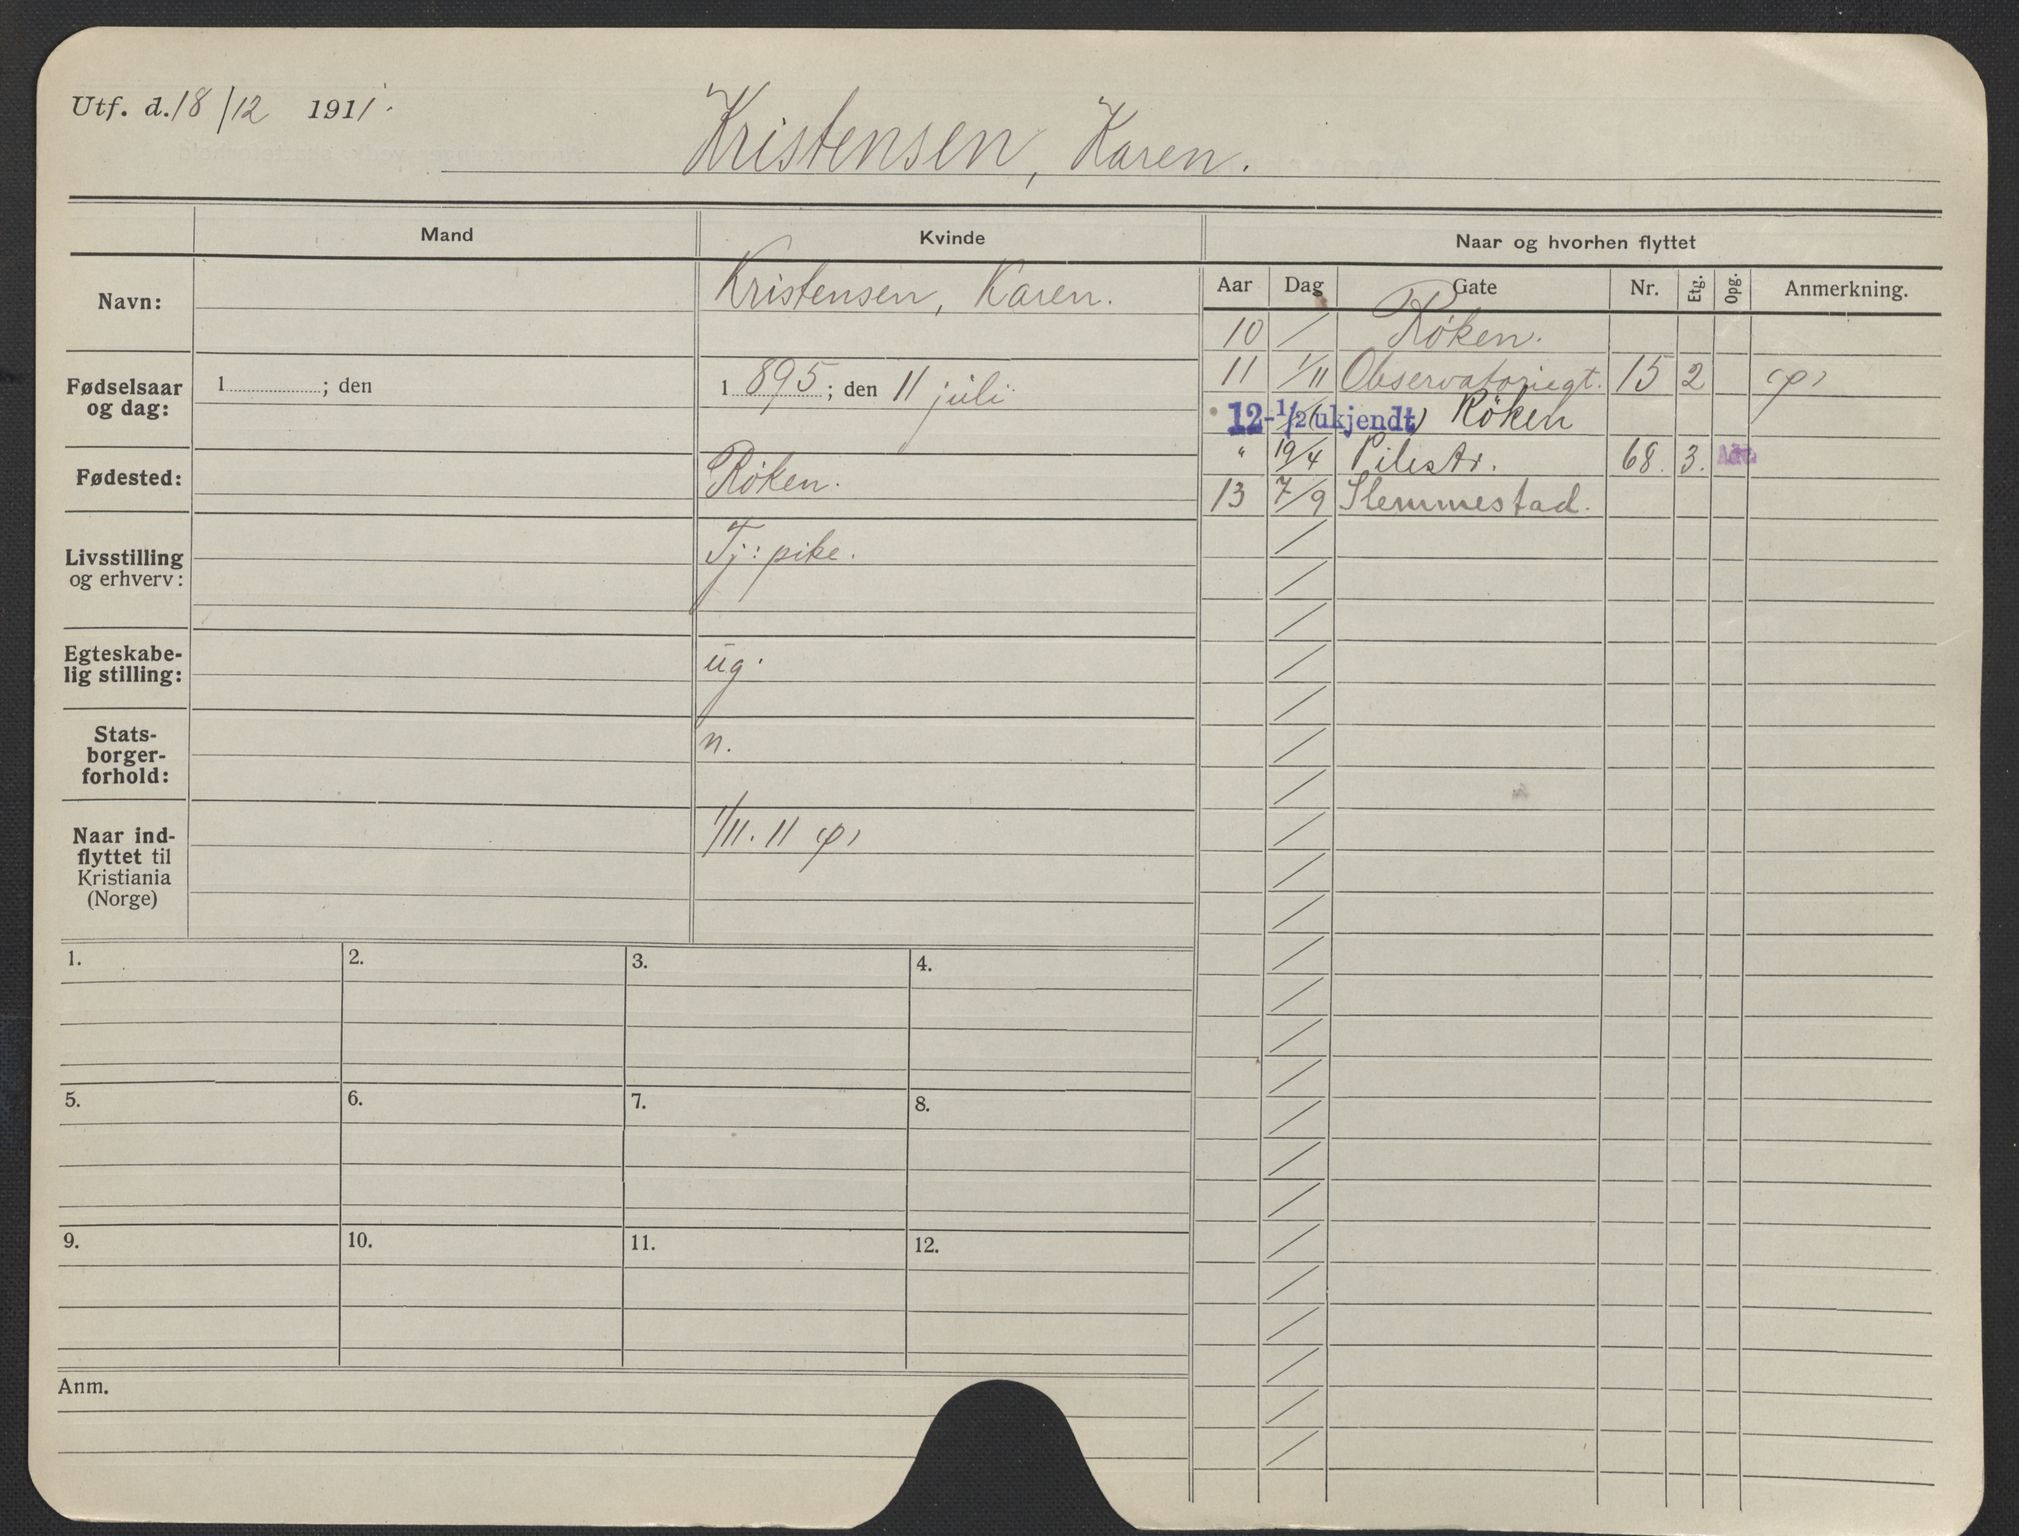 Utf. d. 18/12 1911.
Kristensen, Karen.
Mand Kvinde Naar og hvorhen flyttet
Navn: Kristensen, Karen.
Fødselsaar og dag: 1 ; den 1 895 ; den 11 juli
Fødested: Röken.
Livsstilling og erhverv: Tj: pike.
Egteskabe-
lig stilling: ug.
Stats-
borger-
forhold: n.
Naar ind-
flyttet til
Kristiania
(Norge) 1/11. 11
Aar Dag Gate Nr. Etg. Opg. Anmerkning.
10 / Röken.
11 1/11 Observatoriegt. 15 2
12-1/2 (ukjendt) Röken
" 19/4 Pilestr. 68. 3.
13 7/9 Slemmestad.
1. 2. 3. 4.
5. 6. 7. 8.
9. 10. 11. 12.
Anm.